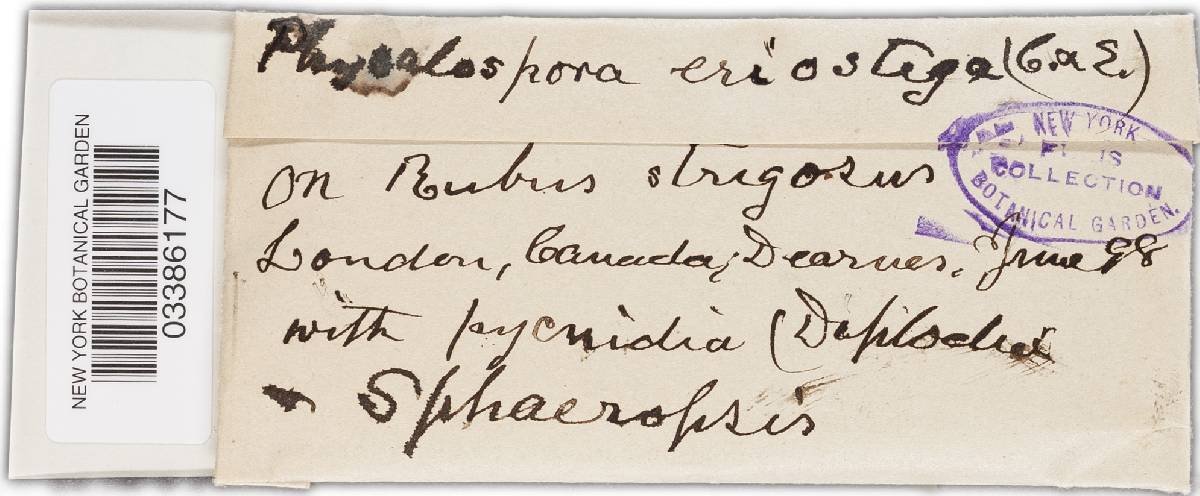 Physalospora eriostega (C. & E.)
on Rubus strigosus
London, Canada, Dearnes. June 98
with pycnidia (Diplodia
Sphaeropsis
NEW YORK
ELLIS
COLLECTION
BOTANICAL GARDEN.
NEW YORK BOTANICAL GARDEN
03386177